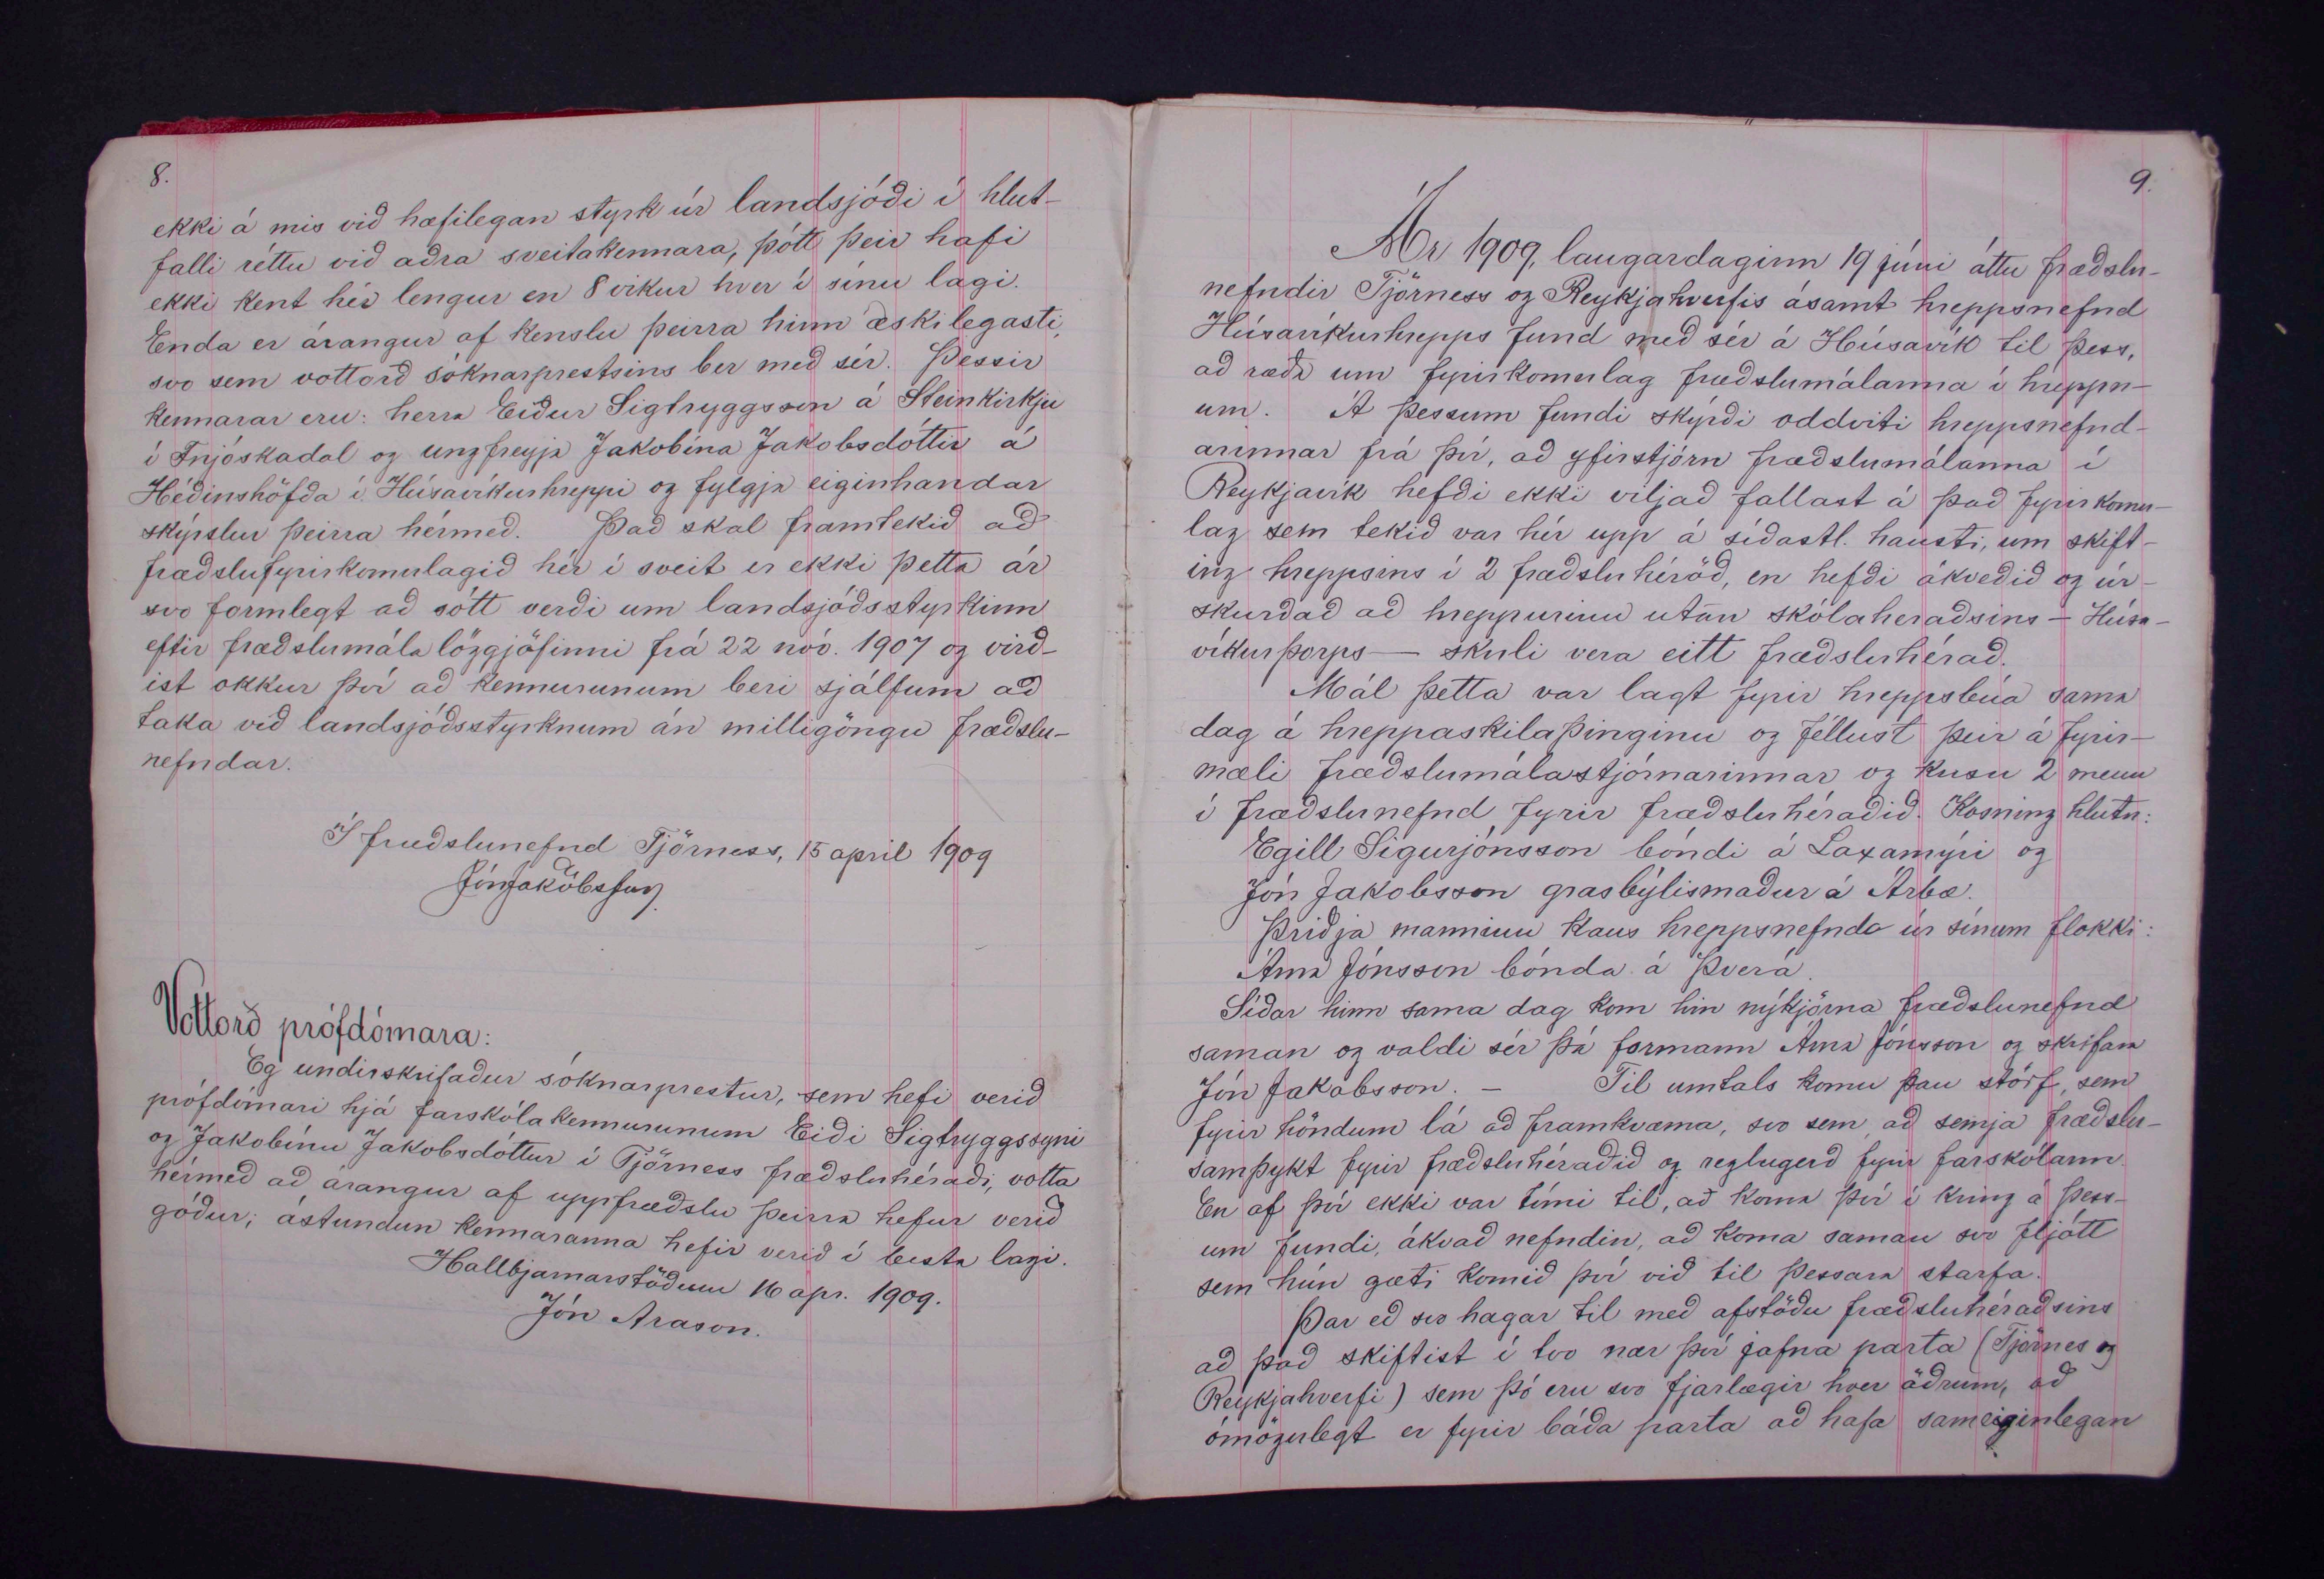 8.
ekki á mis við hæfilegan styrk úr landsjóði í hlut-
falli réttu við aðra sveitakennara, þótt þeir hafi
ekki kent hér lengur en 8 vikur hver í sínu lagi.
Enda er árangur af kenslu þeirra hinn æskilegasti,
svo sem vottorð sóknarprestsins ber með sér. Þessir
kennarar eru: herra Eiður Sigtryggsson á Steinkirkju
í Fnjóskadal og ungfreyja Jakobína Jakobsdóttir á
Héðinshöfða í Húsavíkurhreppi og fylgja eiginhandar
skýrslur þeirra hérmeð. Það skal framtekið að
fræðslufyrirkomulagið hér í sveit er ekki þetta ár
svo formlegt að sótt verði um landsjóðsstyrkinn
eftir fræðslumála löggjöfinni frá 22 nóv. 1907 og virð-
ist okkur því að kennurunum beri sjálfum að
taka við landsjóðsstyrknum án milligöngu fræðslu-
nefndar.
Í fræðslunefnd Tjörness, 15 april 1909
Jón Jakobsson
Vottorð prófdómara:
Eg undirskrifaður sóknarprestur, sem hefi verið
prófdómari hjá farskólakennurunum Eiði Sigtryggssyni
og Jakobínu Jakobsdóttur í Tjörness fræðsluhéraði, votta
hérmeð að árangur af uppfræðslu þeirra hefur verið
góður; ástundun kennaranna hefir verið í besta lagi.
Hallbjarnarstöðum 16 apr. 1909.
Jón Arason.
9.
Ár 1909, laugardaginn 19 júní áttu fræðslu-
nefndir Tjörness og Reykjahverfis ásamt hreppsnefnd
Húsavíkurhrepps fund með sér á Húsavík til þess,
að ræða um fyrirkomulag fræðslumálanna í hreppn-
um. Á þessum fundi skýrði oddviti hreppsnefnd-
arinnar frá því, að yfirstjórn fræðslumálanna í
Reykjavík hefði ekki viljað fallast á það fyrirkomu-
lag sem tekið var hér upp á síðastl. hausti, um skift-
ing hreppsins í 2 fræðsluhéröð, en hefði ákveðið og úr-
skurðað að hreppurinn utan skólaheraðsins – Húsa-
víkurþorps – skuli vera eitt fræðsluhérað.
Mál þetta var lagt fyrir hreppsbúa sama
dag á hreppaskilaþinginu og féllust þeir á fyrir-
mæli fræðslumálastjórnarinnar og kusu 2 menn
í fræðslunefnd fyrir fræðsluhéraðið. Kosning hlutu:
Egill Sigurjónsson bóndi á Laxamýri og
Jón Jakobsson grasbýlismaður á Árbæ.
Þriðja manninn kaus hreppsnefnda úr sínum flokki:
Árna Jónsson bónda á Þverá.
Síðar hinn sama dag kom hin nýkjörna fræðslunefnd
saman og valdi sér þá formann Árna Jónsson og skrifara
Jón Jakobsson. – Til umtals komu þau störf, sem
fyrir höndum lá að framkvæma, svo sem að semja fræðslu-
samþykt fyrir fræðsluhéraðið og reglugerð fyrir farskólann.
En af því ekki var tími til, að koma því í kring á þess-
um fundi, ákvað nefndin, að koma saman svo fljótt
sem hún gæti komið því við til þessara starfa.
Þar eð svo hagar til með afstöðu fræðsluhéraðsins
að það skiftist í tvo nær því jafna parta (Tjörnes og
Reykjahverfi) sem þó eru svo fjarlægir hver öðrum, að
ómögulegt er fyrir báða parta að hafa sameiginlegan